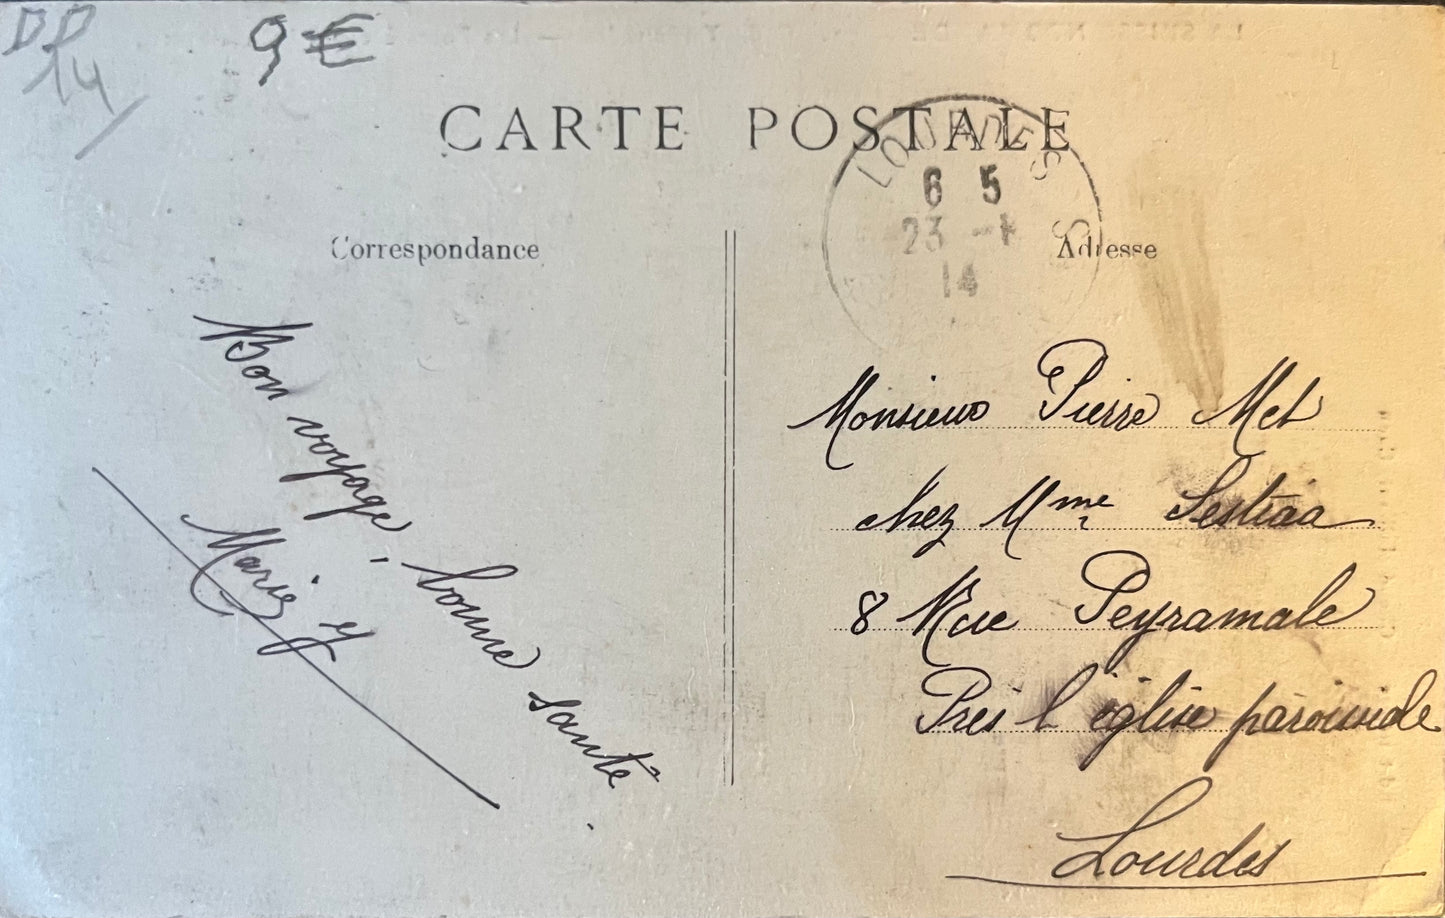 DD
14
9 €
CARTE POSTALE
LOURDES
6 5
23 -1
14
Correspondance
Adresse
Bon voyage, bonne santé.
Marie Y
Monsieur Pierre Met
chez Mme Sestiaa
8 Rue Peyramale
Près l'église paroissiale
Lourdes